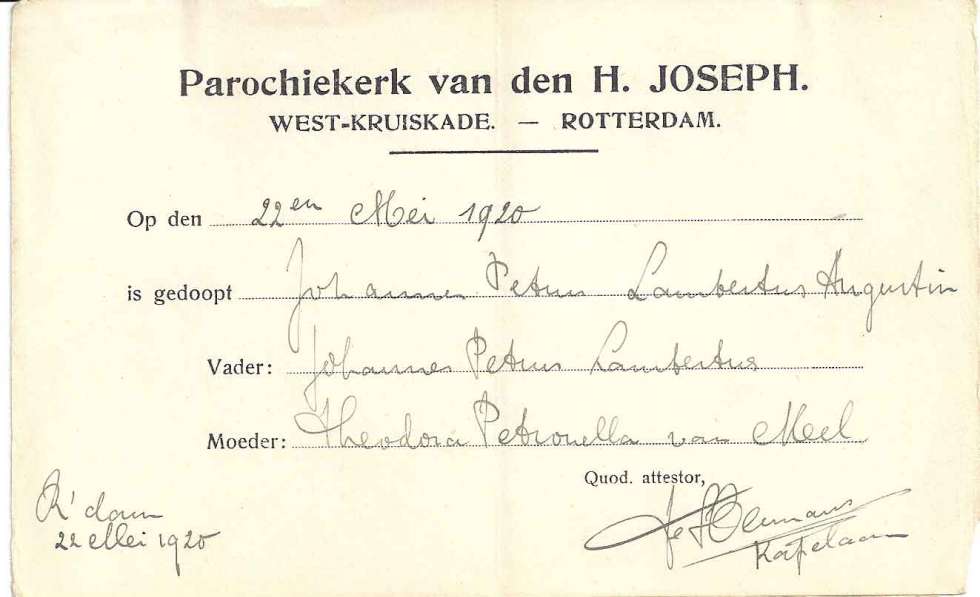 Parochiekerk van den H. JOSEPH.
WEST-KRUISKADE. — ROTTERDAM.
Op den 22en Mei 1920
is gedoopt Johannes Petrus Lambertus Augustin
Vader: Johannes Petrus Lambertus
Moeder: Theodora Petronella van Meel
Quod. attestor,
R'dam
22 Mei 1920
Kapelaan